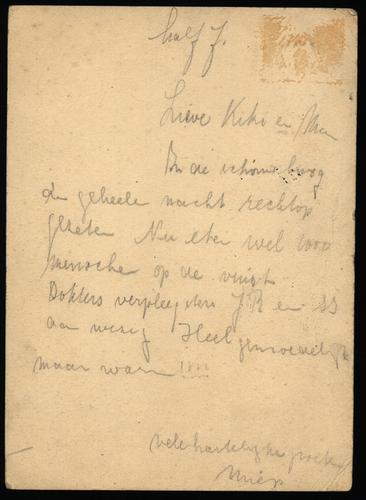 half 7.
Lieve Kiki en Max
In de schouwburg
de geheele nacht rechtop
gezeten Nu eten wel 1000
mensche op de
Dokters verpleegsters J R en SS
aan wezig Heel gemoedelijk
maar warm !!!!
vele hartelijke
Miep